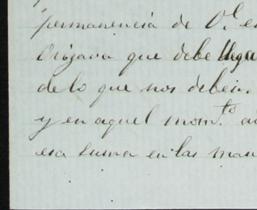 permanencia de V.
Orizava que debe llega
de lo que nos deben.
y en aquel mom.to
esa suma en las man